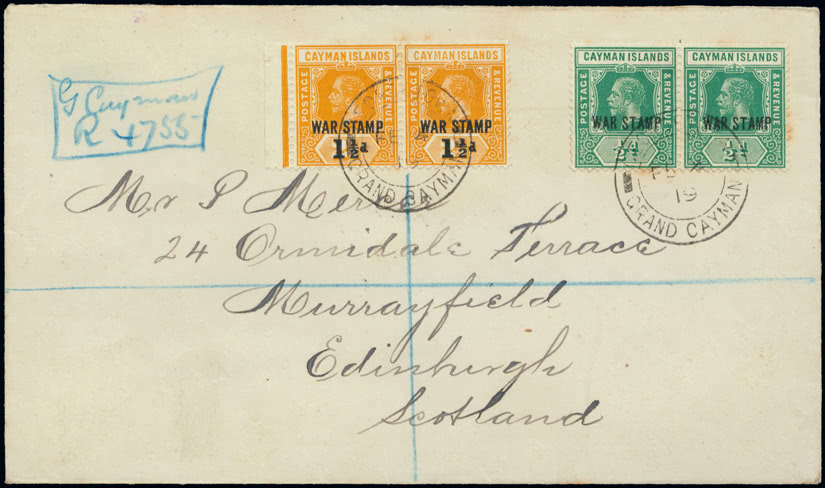 CAYMAN ISLANDS
POSTAGE
& REVENUE
WAR STAMP
1½d
CAYMAN ISLANDS
POSTAGE
& REVENUE
WAR STAMP
1½d
CAYMAN ISLANDS
POSTAGE
& REVENUE
WAR STAMP
½d
CAYMAN ISLANDS
POSTAGE
& REVENUE
WAR STAMP
½d
GRAND CAYMAN
FE
19
GRAND CAYMAN
G Cayman
R 4755
Mr P
24 Ormidale Terrace
Murrayfield
Edinburgh
Scotland